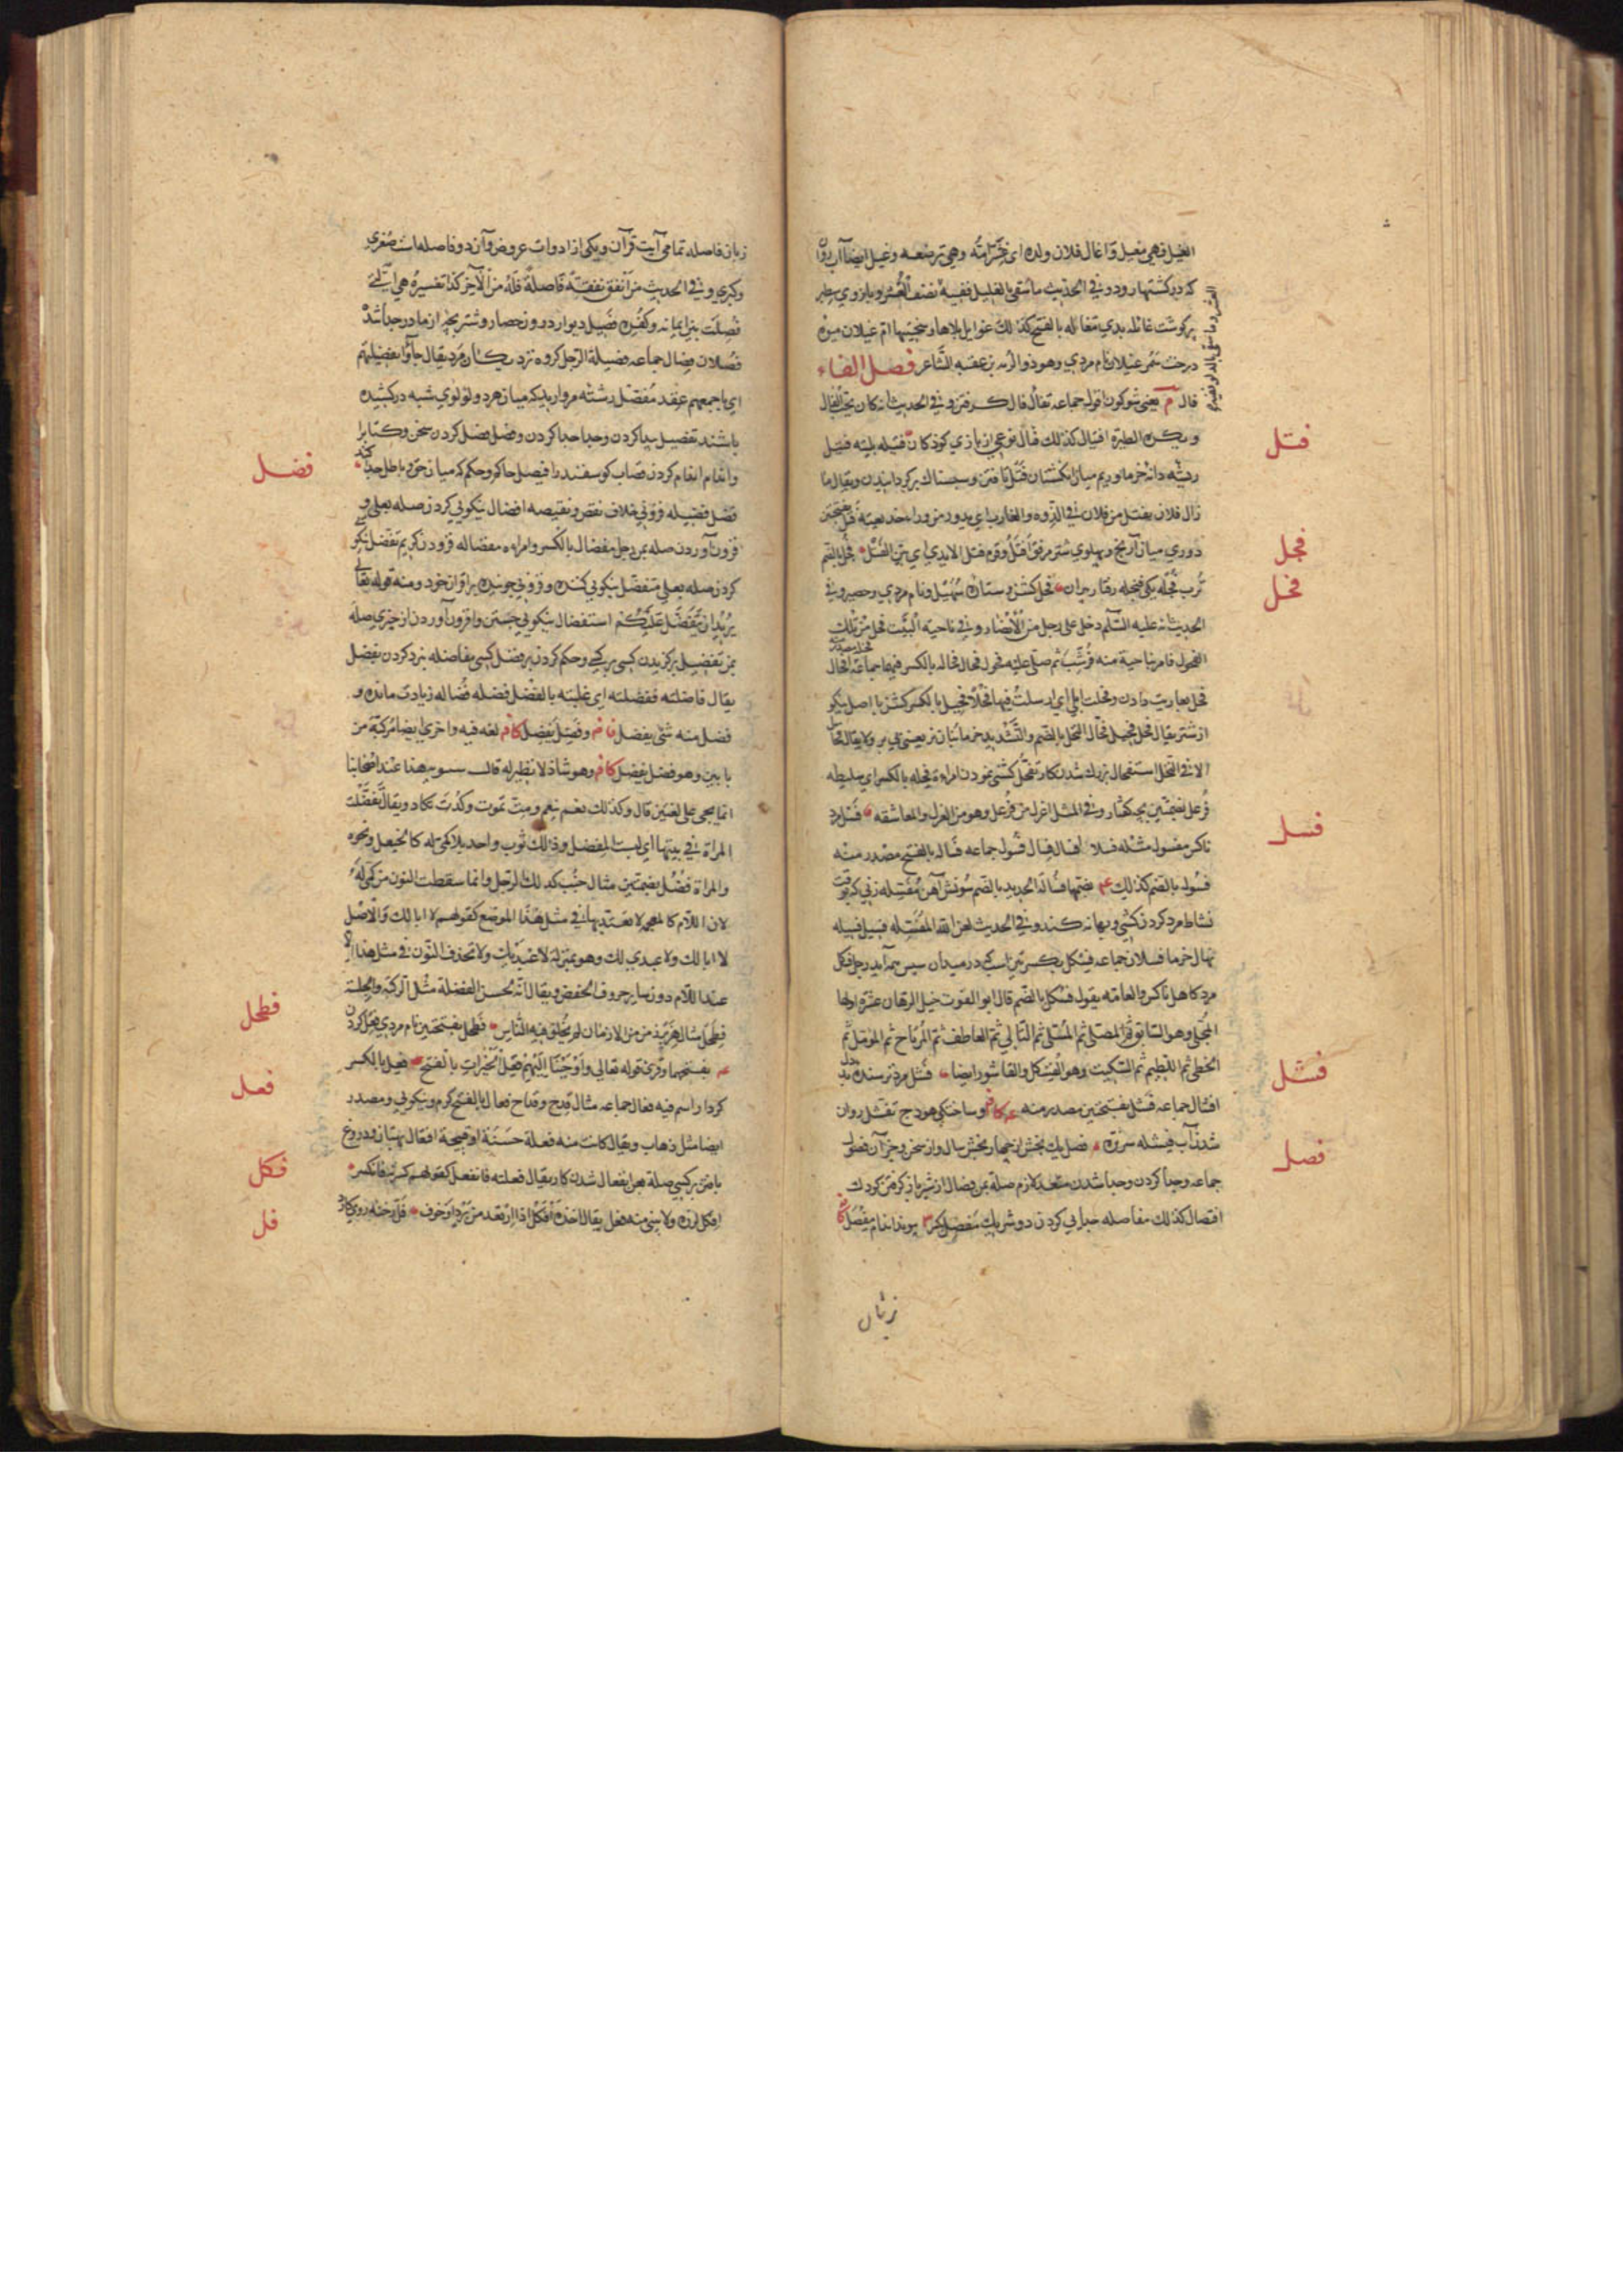 الغيل فهي مغيل واغال فلان ولده اى غشى امّه وهي ترضعه وغيل ايضا آب روان
كه در كشتهار رود وفي الحديث ما سقى بالغيل ففيه نصف العشر وبازوي سطبر
پر گوشت غائله بدي مغاله بالفتح كذلك غوايل بلاها وسختيها امّ غيلان ميوه
درخت سمر غيلان نام مردي وهو ذو الرمه بن عقبه الشاعر فصل الفاء
فال م يعنى شوكون افول جماعه تفأل فال كرفتن وفي الحديث انه كان يحبّ الفال
ويكره الطيرة افتيال كذلك فئال نوعى از بازي كودكان فتيله پليته فتيل
رشته دانه خرما وريم ميان انگشتان فتل تافتن وسپستاك بر گردانيدن ويقال ما
زال فلان يفتل من فلان في الذروه والغارب اي يدور من وراء خديعته فتل بفتحتين
دوري ميان آرنج وپهلوي شتر مرفق افتل وقوم فتل الايدي اي بيّن الفتل فجل بالضم
ترب فجله يكى فنجله رفتار پيران فحل گشن وستاره سهيل ونام مردي وحصير وفي
الحديث انه عليه السلام دخل على رجل من الانصار وفي ناحية البيت فحل من تلك
الفحول فامر بناحية منه فرشّت ثم صلى عليه فحول فحال فحاله بالكسر فيهما جماعة افحال
فحل بعاريت دادن وفحلت ابلي اي ارسلت فيها فحلا فحيل بالكسر گشن با اصل نيكو
از شتر يقال فحل فحيل فحّال النخل بالضم والتشديد خرما بنان نر يعنى مي بر ولا يقال فحال
الا في النخل استفحال بزرگ شدن كار تفحّل گشنى نمودن امراة فحله بالكسر اي سليطه
فرعل بضمتين بچه كفتار وفي المثل اغزل من فرعل وهو من الغزل والمعاشقه فسل مرد
ناكس مفسول مثله فسلا افسال فسال فسول جماعه فساله بالفتح مصدر منه
فسوله بالضم كذلك بضمها فسالة الحديد بالضم سونش آهن مفسله زنى كه بوقت
نشاط مرد كردن كشى وبهانه كند وفي الحديث لعن الله المفسله فسيل فسيله
نهال خرما فسلان جماعه فسكل بكسرتين اسپ كه در ميدان سپس همه آيد رجل فسكل
مرد كاهل ناكس والعامّه يقول فسكل بالضم قال ابو الغوث خيل الرهان عشره اولها
المجلّي وهو السابق ثم المصلّى ثم المسلّى ثم التالي ثم العاطف ثم المرتاح ثم المؤمل ثم
الحظي ثم اللطيم ثم السكيت وهو الفسكل والقاشور ايضا فشل مرد ترسنده بد دل
افشال جماعه فشل بفتحتين مصدر منه وساختگى هودج تفشل روان
شدن آب فيشله سرنره فصل يك بخش از چهار بخش سال واز سخن وجز آن فصول
جماعه وجدا كردن وجدا شدن متعد لازم صلة بمن فصال از شير باز گرفتن كودك
افتصال كذلك مفاصله جدايي كردن دو شريك مفصل پيوند اندام مفصل
زبان
فتل
فجل
فحل
فسل
فشل
فصل
زبان فاصله تمامى آيت قرآن ويكى از ادوات عروض وآن دو فاصله است صغرى
وكبري وفي الحديث من انفق نفقة فاصلة فله من الاجر كذا تفسيره هي التي
فصلت بين ايمانه وكفره فصيل ديوار درون حصار وشتر بچه از مادر جدا شده
فصلان فصال جماعه فصيلة الرجل گروه نزديكتر مرد يقال جاؤا بفصيلتهم
اي باجمعهم عقد مفصّل رشته مرواريد كه ميان هر دو لؤلؤي شبه در كشيده
باشند تفصيل پيدا كردن وجدا جدا كردن وفصل فصل كردن سخن وكتاب را
واندام اندام كردن قصاب گوسفند را فيصل حاكم وحكم كه ميان حق وباطل جدا كند
فضل فضيله فزوني خلاف نقص ونقيصه افضال نيكويي كردن صله بعلى و
فزون آوردن صله بمن رجل مفضال بالكسر وامراه مفضاله فزودن كريم تفضل نيكو
كردن صله بعلى متفضّل نيكويي كننده وفزوني جوينده بر اقران خود ومنه قوله تعالى
يريد ان يتفضّل عليكم استفضال نيكويي جستن وافزون آوردن از چيزي صله
بمن تفضيل برگزيدن كسى بر كسى وحكم كردن بر فضل كسى مفاضله نبرد كردن بفضل
يقال فاضلته ففضلته اي غلبته بالفضل فضله فضاله زيادت مانده و
فضل منه شئ يفضل وفضل يفضل لغه فيه واخري ايضا مركبة من
بابين وهو فضل يفضل وهو شاذ لا نظير له قال سيبويه هذا عند اصحابنا
انما يجى على لغتين قال وكذلك نعم ينعم ومتّ تموت وكدت تكاد ويقال تفضّلت
المراة في بيتها اي لبست المفضل وذلك ثوب واحد بلا كمّى له كالخيعل ونحوه
والمراة فضل بضمتين مثال جنب كذلك الرجل وانما سقطت النون من كمى له
لان اللام كالمقحمه لا تعتد بها في مثل هذا الموضع كقولهم لا ابا لك والاصل
لا اباك ولا عبدي لك وهو بمنزلة لا عبديك ولا تحذف النون في مثل هذا الا
عند اللام دون ساير حروف الخفض ويقال انه لحسن الفضلة مثل الركبة والجلسة
فطحل مثال هزبر زمن من الازمان لم يخلق فيه الناس فطحل بفتحتين نام مردي فعل كردن
بفتحهما وقرئ قوله تعالى واوحينا اليهم فعل الخيرات بالفتح فعل بالكسر
كردار اسم فيه فعال جماعه مثال قدح وقداح فعال بالفتح كرم ونيكويي ومصدر
ايضا مثل ذهاب ويقال كانت منه فعلة حسنة او قبيحة افتعال بهتان ودروغ
بافتن بر كسى صلة بعن انفعال شدن كار يقال فعلته فانفعل كقولهم كسرته فانكسر
افكل لرزه ولا يبنى منه فعل يقال اخذه افكل اذا ارتعد من برد او خوف فلّ رخنه روي كارد
فضل
فطحل
فعل
فكل
فل